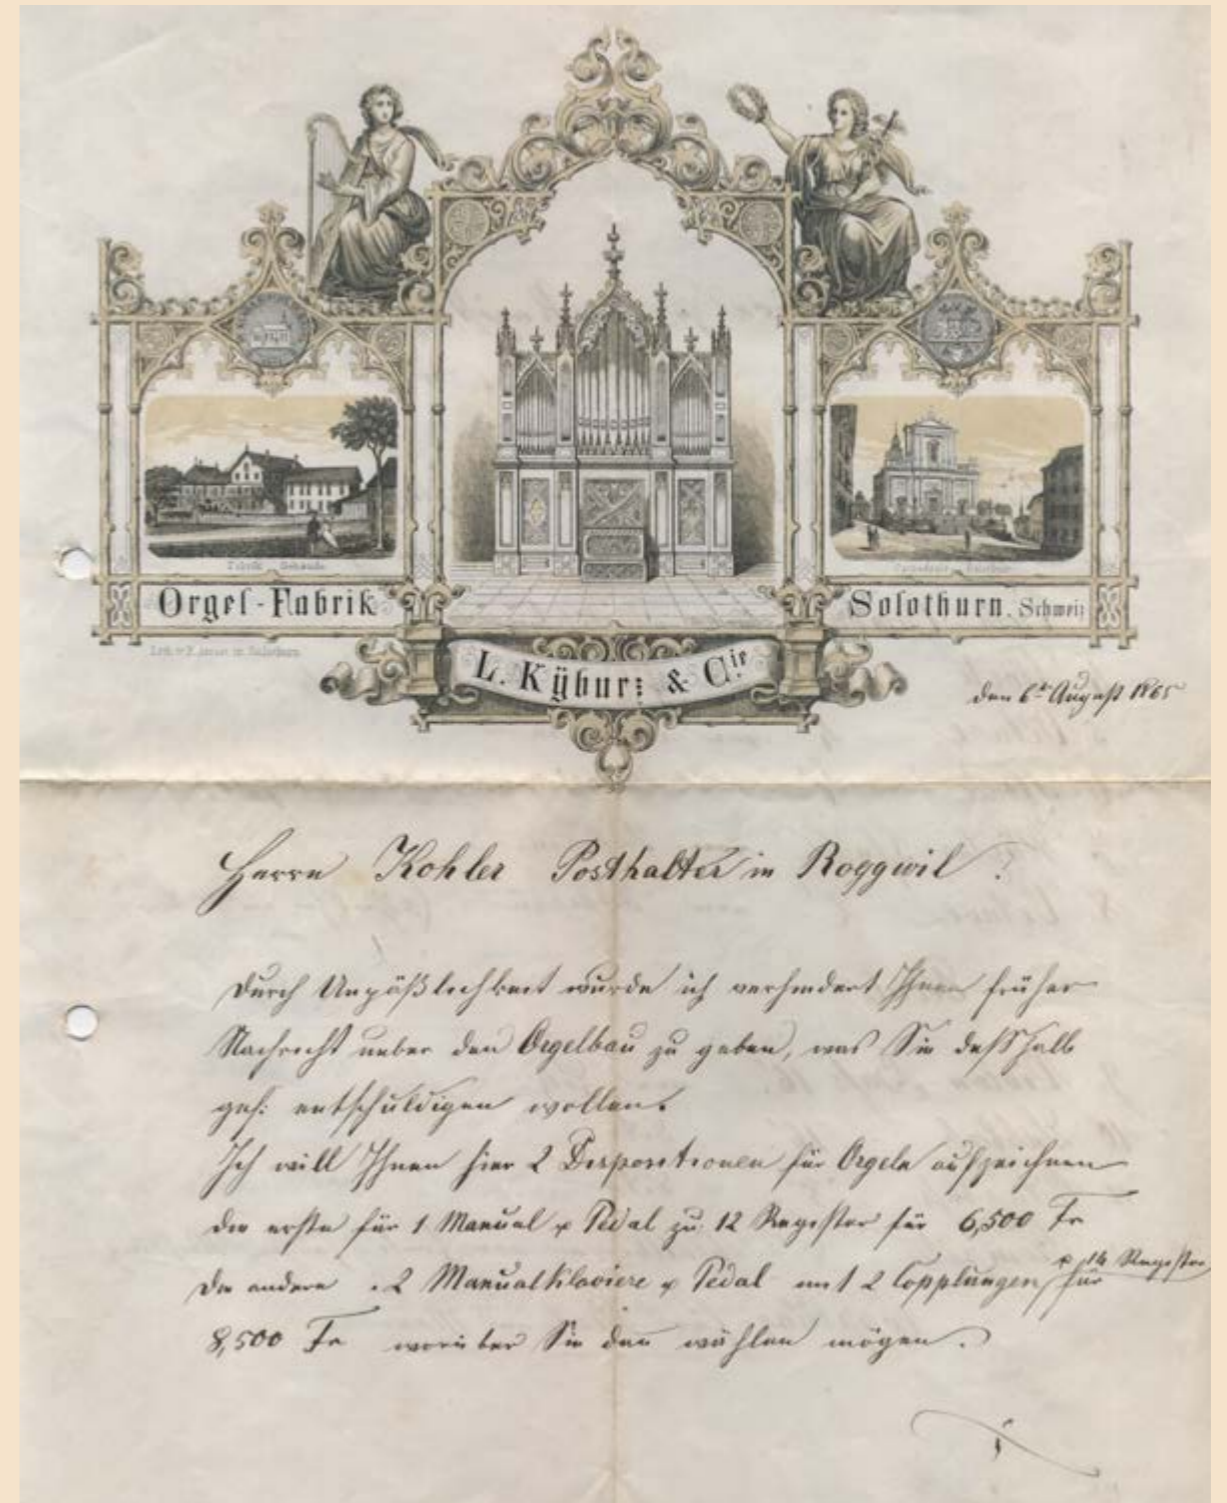 Fabrik Gebäude
Orgel-Fabrik
Solothurn. Schweiz
in Solothurn
L. Kÿburz & Cie
den 6ten August 1865
Herrn Kohler Posthalter in Roggwil !
Durch Unpäßlichkeit wurde ich verhindert Ihnen früher
Nachricht ueber den Orgelbau zu geben, was Sie deßhalb
gef: entschuldigen wollen.
Ich will Ihnen hier 2 Dispositionen für Orgeln aufzeichnen
die erste für 1 Manual & Pedal zu 12 Register für 6,500 Fr
die andere 2 Manualklaviere & Pedal mit 2 Copplungen & 14 Register für
8,500 Fr worüber Sie dan wählen mögen.